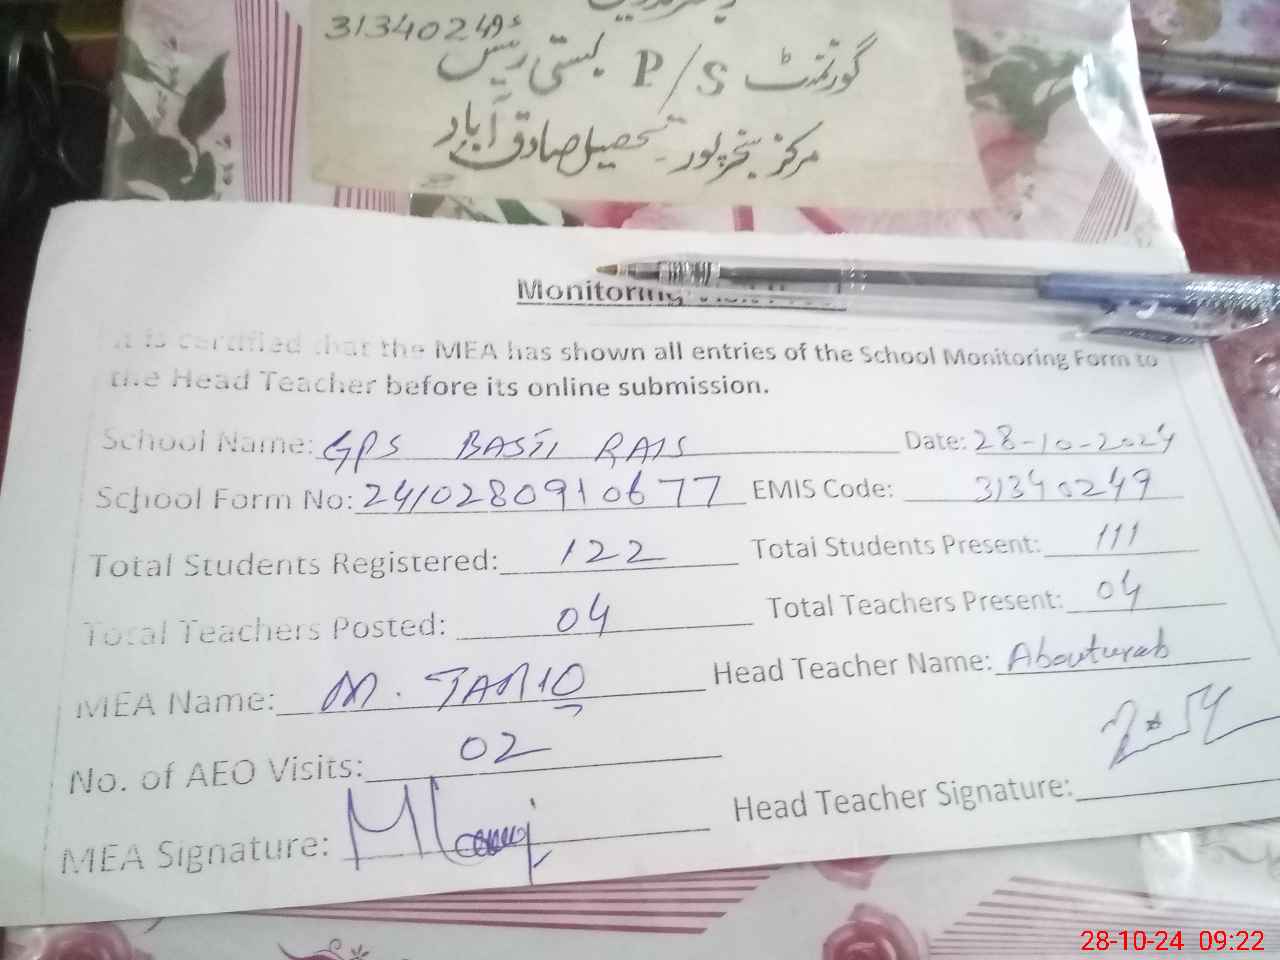 31340249
گورنمنٹ P/S بستی رئیس
مرکز سنجرپور۔ تحصیل صادق آباد
Monitoring
It is certified that the MEA has shown all entries of the School Monitoring Form to
the Head Teacher before its online submission.
School Name: GPS BASTI RAIS Date: 28-10-2024
School Form No: 2410280910677 EMIS Code: 31340249
Total Students Registered: 122 Total Students Present: 111
Total Teachers Posted: 04 Total Teachers Present: 04
MEA Name: M. TARIQ Head Teacher Name: Abouturab
No. of AEO Visits: 02
MEA Signature: Head Teacher Signature:
28-10-24 09:22